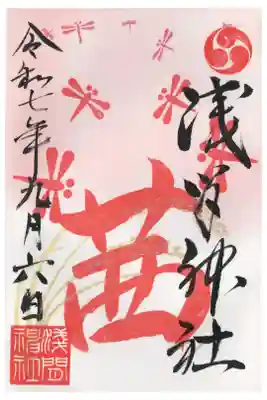 浅間神社
茜
令和七年九月六日
淺間